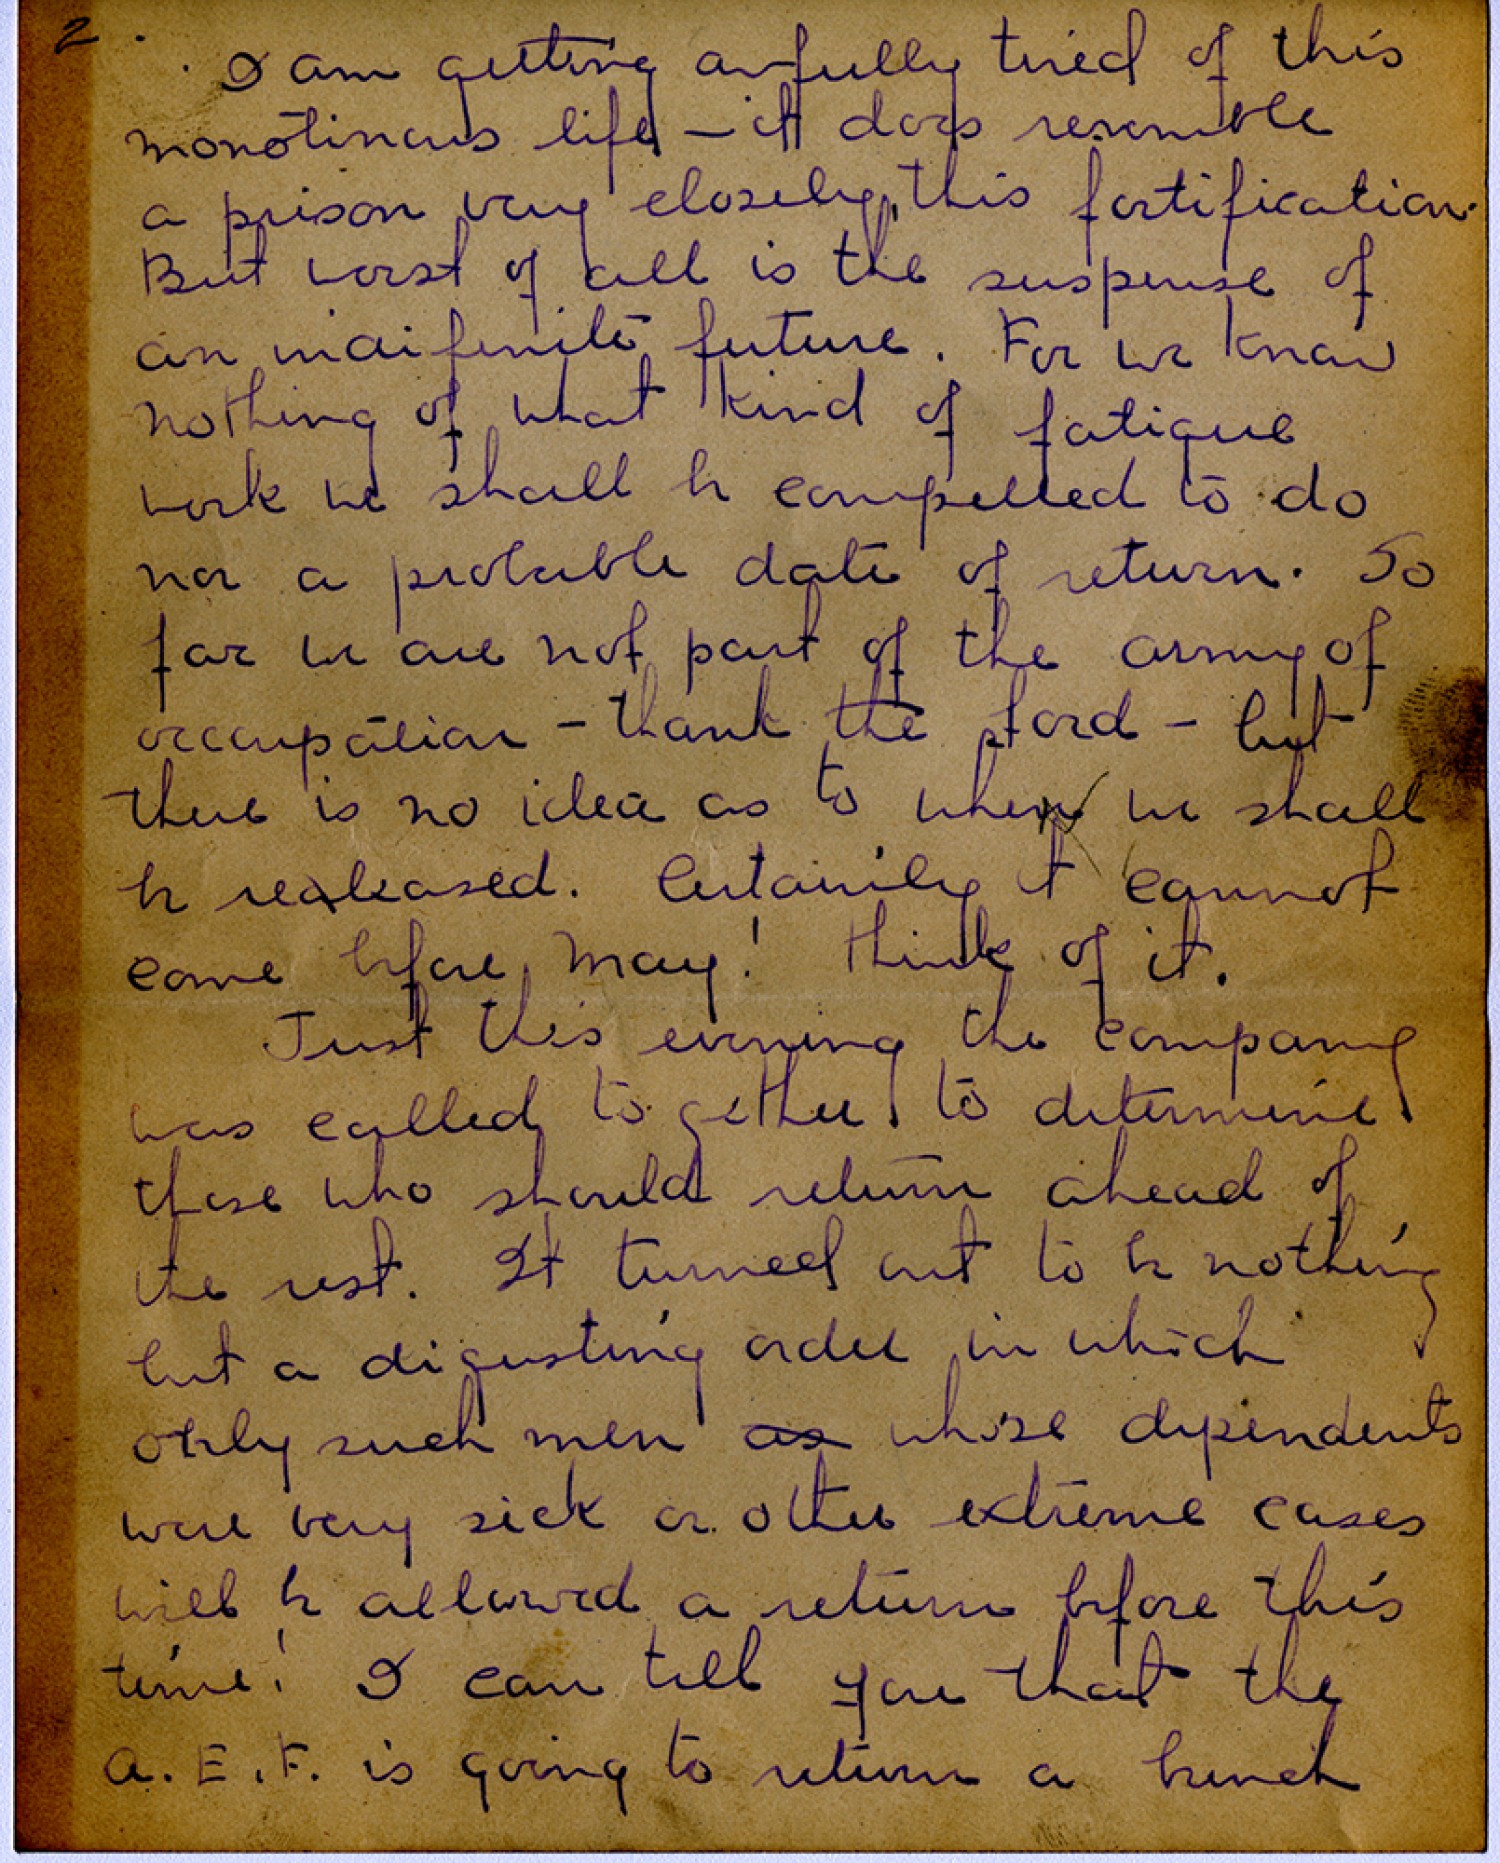 2.
I am getting awfully tired of this
monotinous life – it does resemble
a prison very closely, this fortification.
But worst of all is the suspense of
an indifinite future. For we know
nothing of what kind of fatigue
work we shall be compelled to do
nor a probable date of return. So
far we are not part of the army of
occupation – thank the Lord – but
there is no idea as to when we shall
be realeased. Certainly it cannot
come before May! Think of it.
Just this evening the company
was called together to determine
those who should return ahead of
the rest. It turned out to be nothing
but a digusting order in which
only such men as whose dependents
were very sick or other extreme cases
will be allowed a return before this
time! I can tell you that the
A.E.F. is going to return a bunch